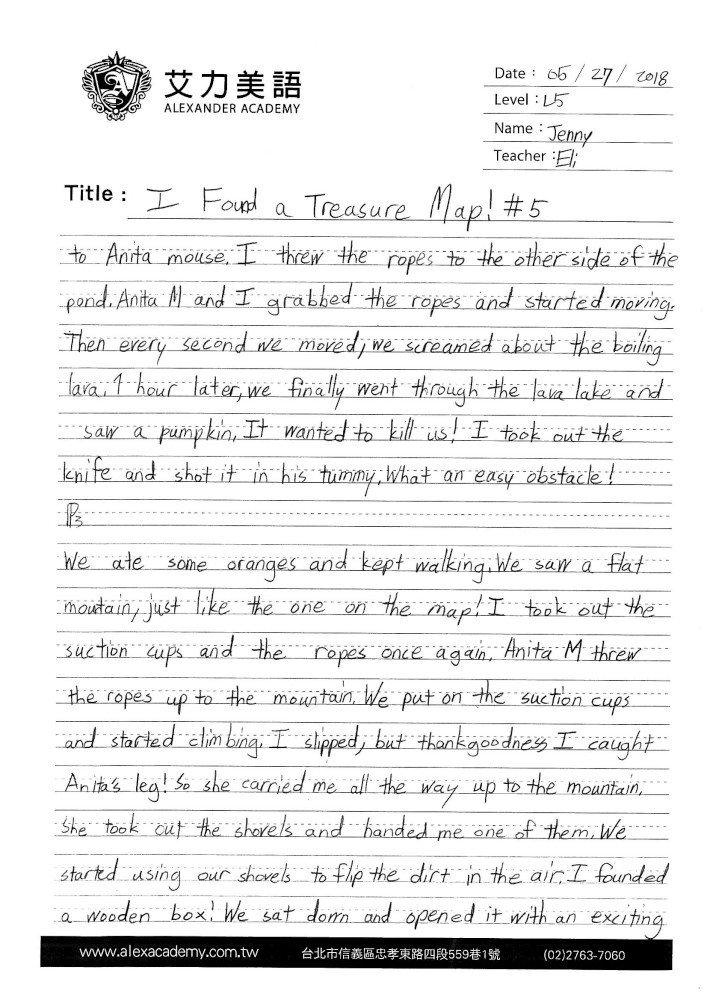 艾力美語
ALEXANDER ACADEMY
Date : 05 / 27 / 2018
Level : L5
Name : Jenny
Teacher : Eli
Title : I Found a Treasure Map! #5
to Anita mouse. I threw the ropes to the other side of the
pond. Anita M and I grabbed the ropes and started moving.
Then every second we moved, we screamed about the boiling
lava. 1 hour later, we finally went through the lava lake and
saw a pumpkin. It wanted to kill us! I took out the
knife and shot it in his tummy. What an easy obstacle!
P3
We ate some oranges and kept walking. We saw a flat
moutain, just like the one on the map! I took out the
suction cups and the ropes once again. Anita M threw
the ropes up to the mountain. We put on the suction cups
and started climbing. I slipped, but thankgoodness I caught
Anita's leg! So she carried me all the way up to the mountain.
She took out the shovels and handed me one of them. We
started using our shovels to flip the dirt in the air. I founded
a wooden box! We sat down and opened it with an exciting
www.alexacademy.com.tw 台北市信義區忠孝東路四段559巷1號 (02)2763-7060